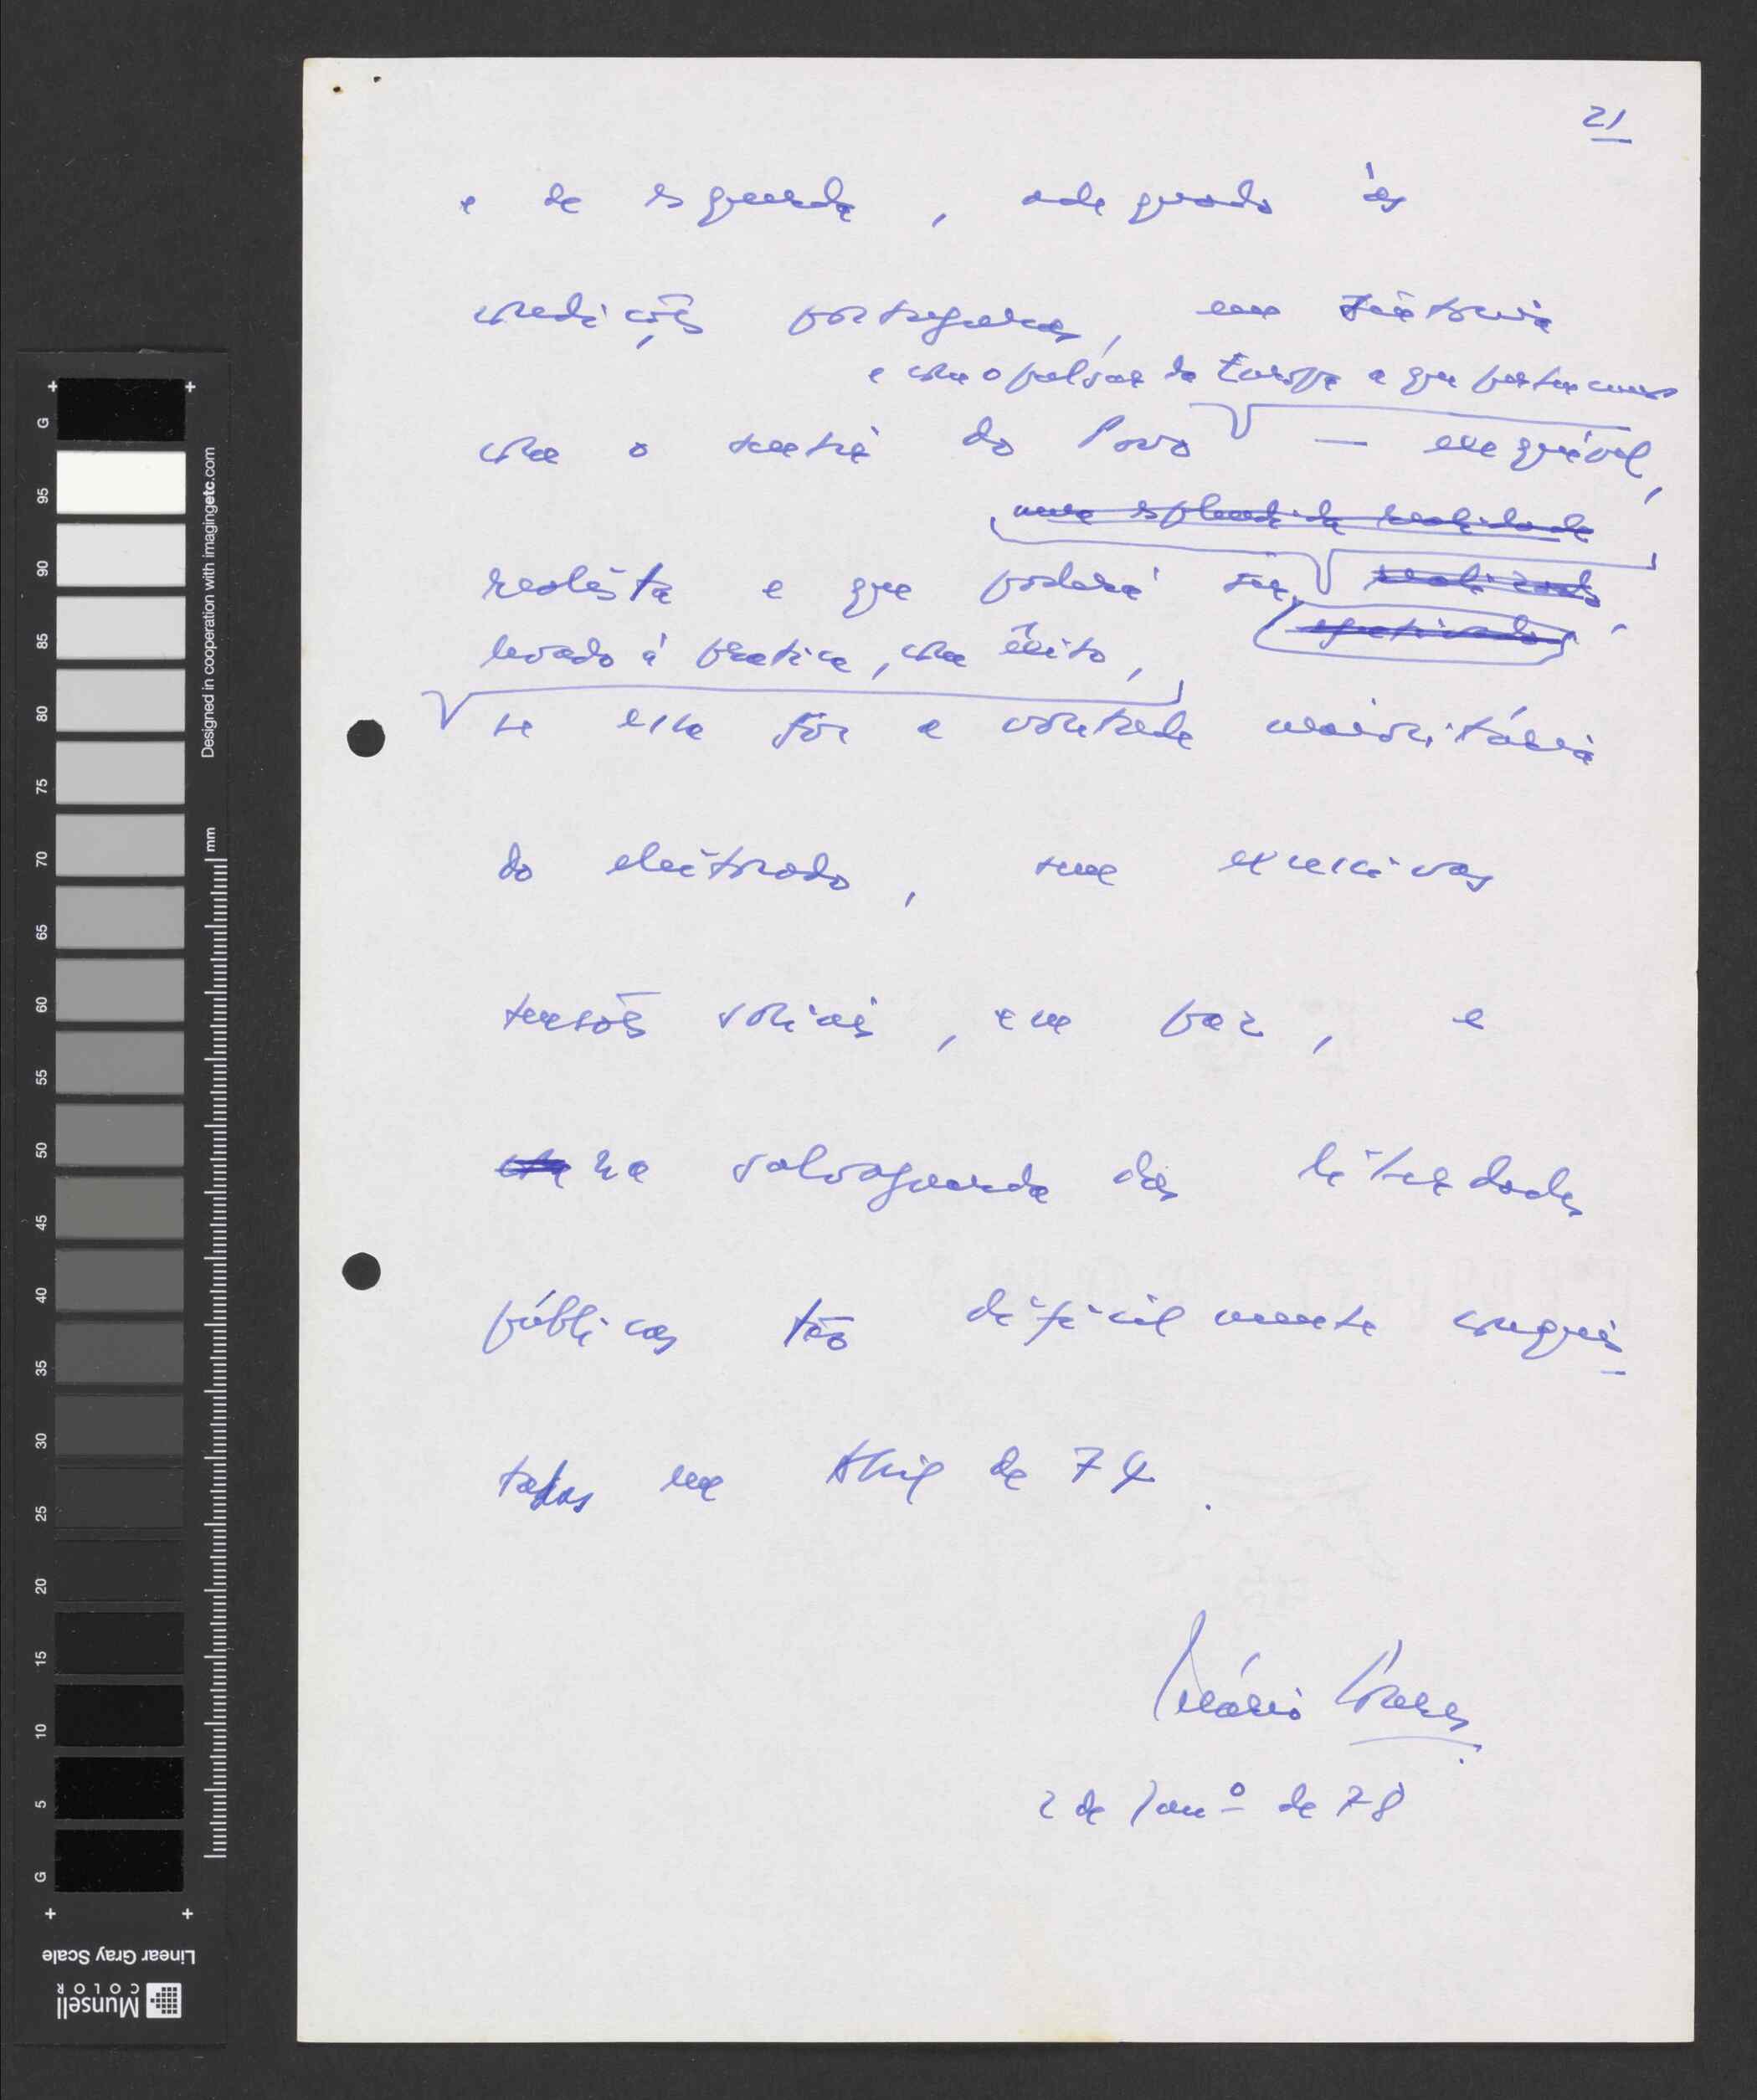 21
e de esquerda, adequado às
condições portuguesas, em sintonia
e com o pulsar da Europa a que pertencemos
com o sentir do Povo — exequível,
uma esplendida realidade
realista e que poderá ser realizado
efectivado
levado à pratica, com êxito,
se essa fôr a vontade maioritária
do eleitorado, sem excessivas
tensões sociais, em paz, e
na salvaguarda das liberdades
públicas tão dificilmente conquis-
tadas em Abril de 74.
Mário Soares
2 de Janº de 78
Designed in cooperation with imagingetc.com
mm
G 95 90 85 80 75 70 65 60 55 50 45 40 35 30 25 20 15 10 5 G
Linear Gray Scale
Munsell
COLOR